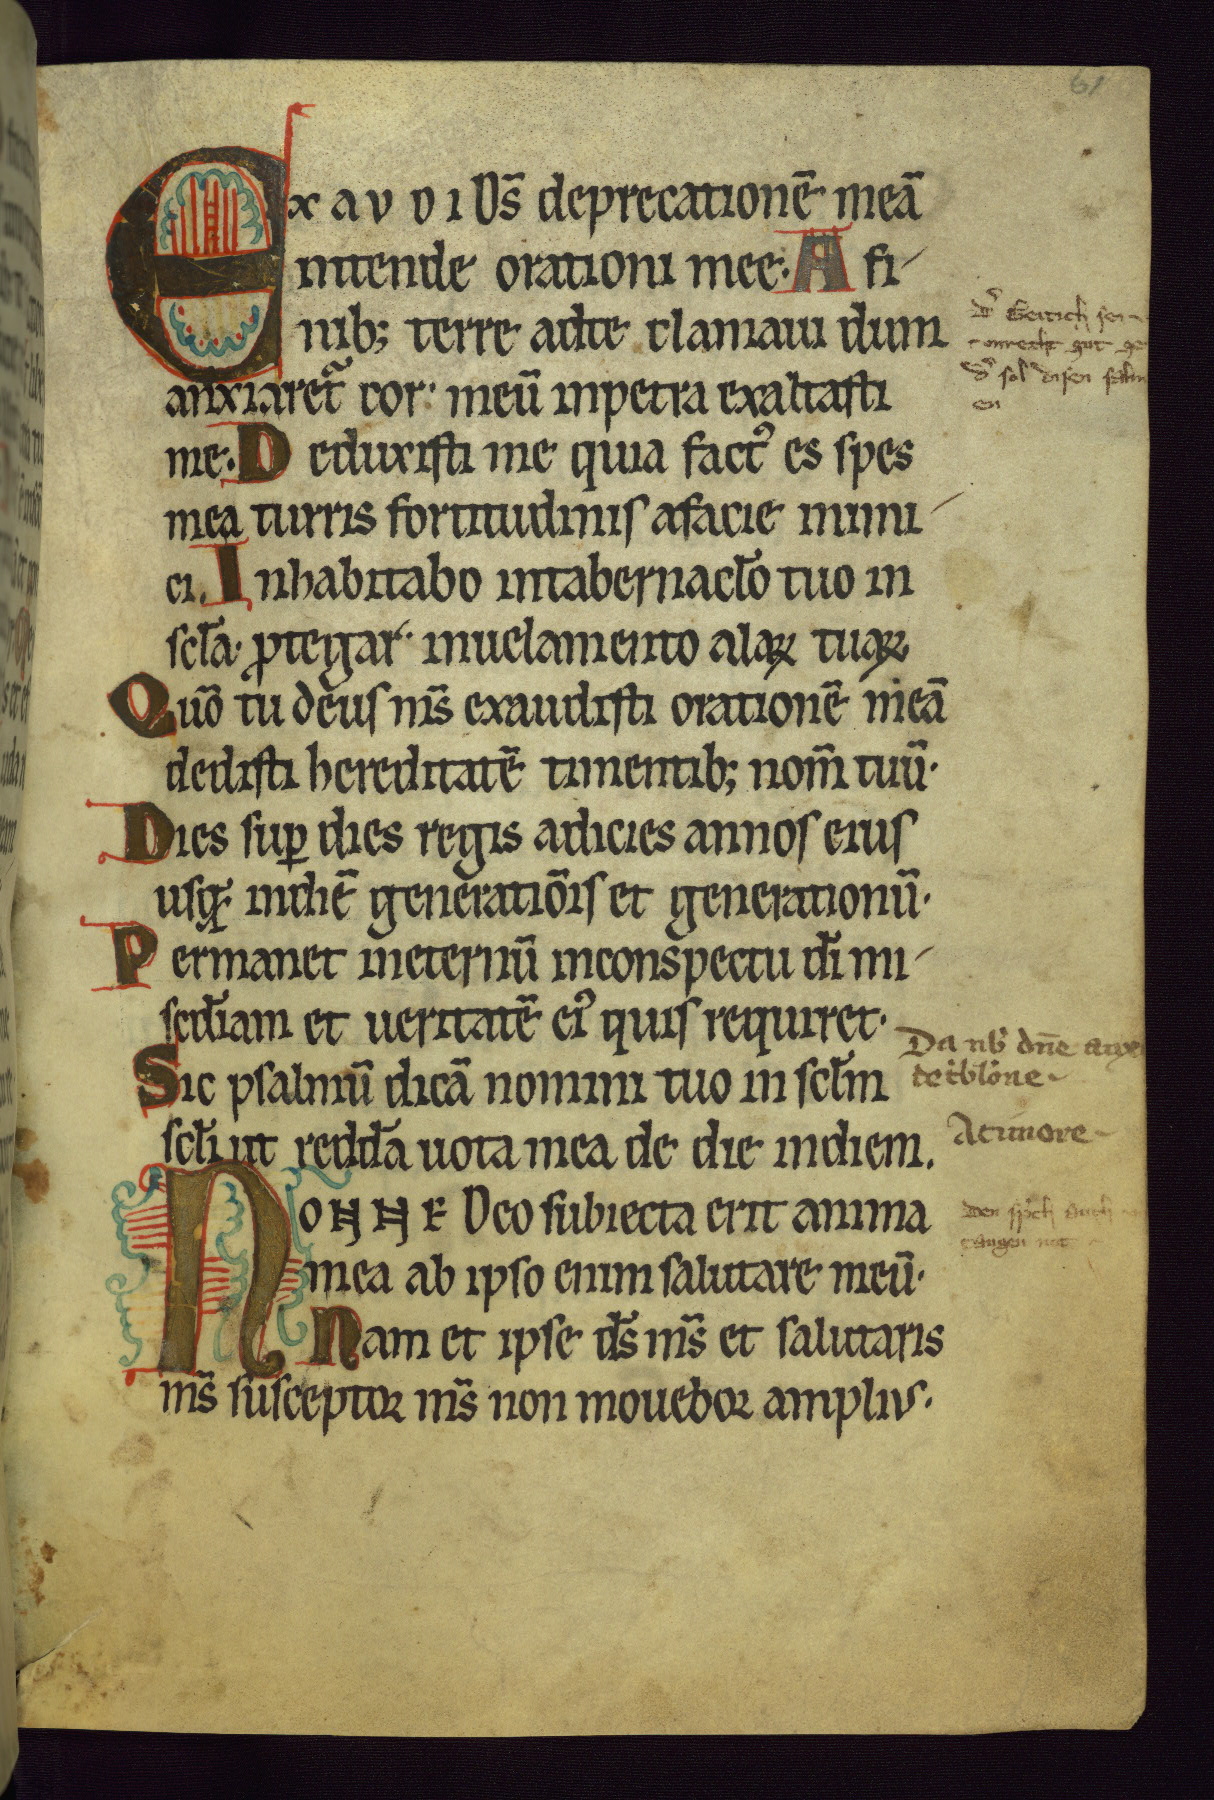 61
EXAVDI Ds̄ deprecationē meā
intende orationi mee· A fi-
nib; terre adte clamaui dum
anxiaret᷑ cor· meū inpetra exaltasti
me. Deduxisti me quia factꝰ es spes
mea turris fortitudinis afacie inimi-
ci. Inhabitabo intabernacl̄o tuo in
scl̄a· ꝓtegar· inuelamento alaꝝ tuaꝝ
Quō tu deus ms̄ exaudisti orationē meā
dedisti hereditatē timentib; nom̄ tuū·
Dies suꝑ dies regis adicies annos eius
usq; indiē generatiōis et generationū·
Permanet ineternū inconspectu dī mi-
sc̄diam et ueritatē eiꝰ quis requiret·
Sic psalmū dicā nomini tuo in scl̄m
scl̄i ut reddā uota mea de die indiem.
NONNE Deo subiecta erit anima
mea ab ipso enim salutare meū·
Nam et ipse ds̄ ms̄ et salutaris
ms̄ susceptor ms̄ non mouebor amplius·
sol disen
Da nb̄ dn̄e
Atimore